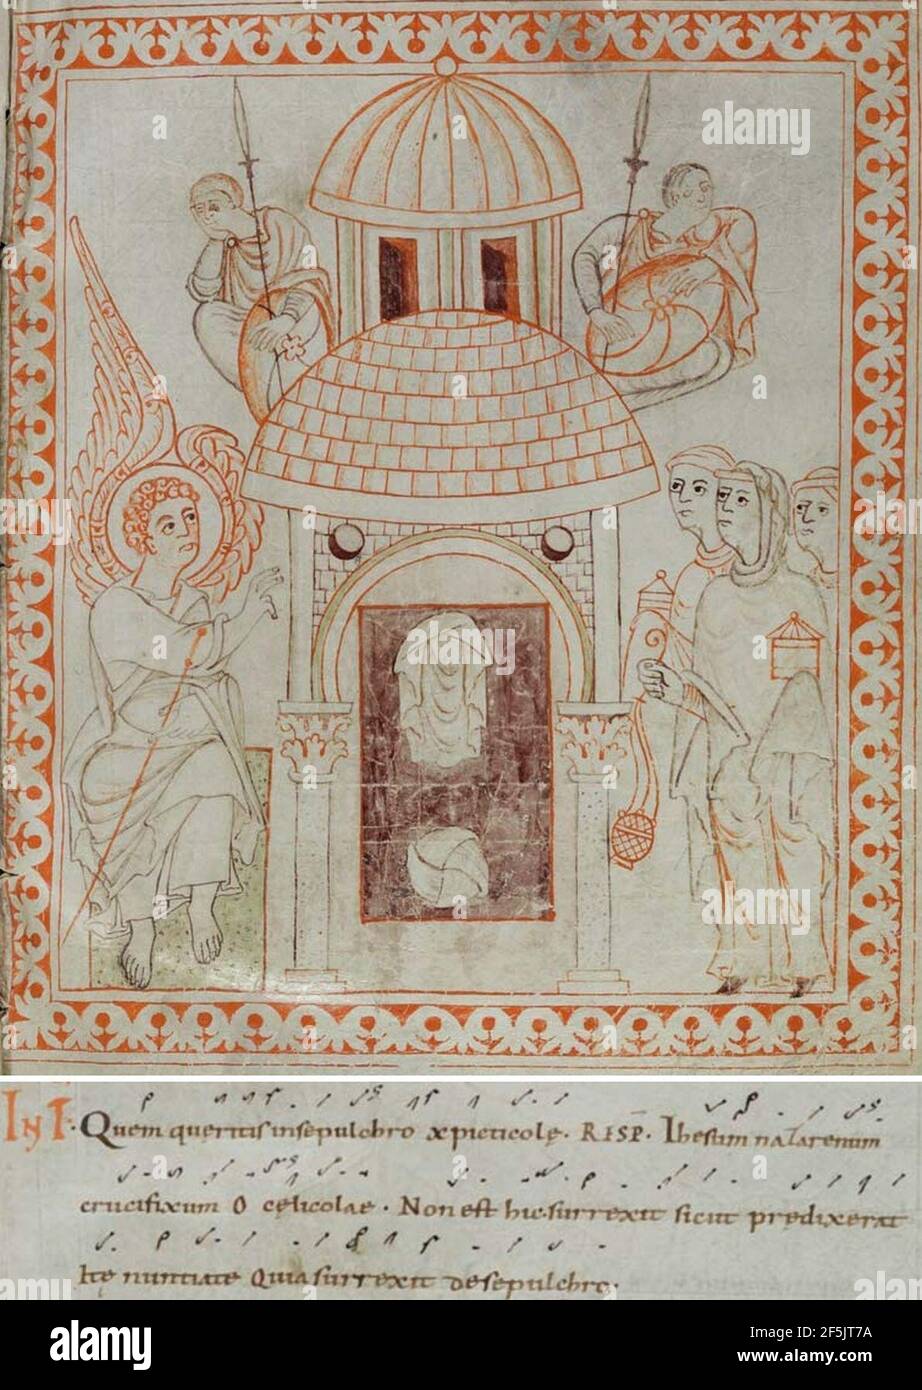 INT· Quem queritis insepulchro xpicticole· RESP̄· Ihesum nazarenum
crucifixum o celicolae· Non est hic surrexit sicut predixerat
Ite nuntiate quia surrexit desepulchro·
a alamy
alamy
Image ID: 2F5JT7A
www.alamy.com